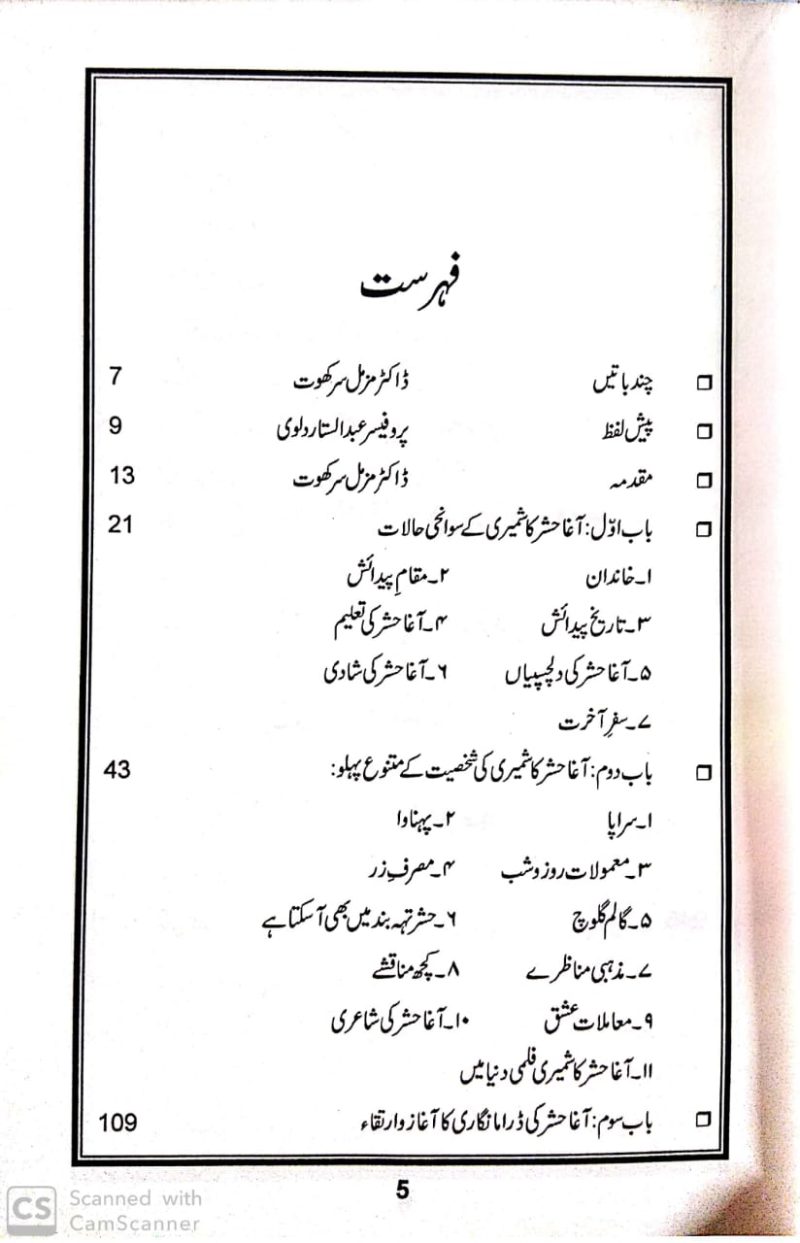 فہرست
❒ چند باتیں ڈاکٹر مزمل سرکھوت 7
❒ پیش لفظ پروفیسر عبدالستار دلوی 9
❒ مقدمہ ڈاکٹر مزمل سرکھوت 13
❒ باب اوّل: آغا حشر کاشمیری کے سوانحی حالات 21
۱۔ خاندان ۲۔ مقامِ پیدائش
۳۔ تاریخ پیدائش ۴۔ آغا حشر کی تعلیم
۵۔ آغا حشر کی دلچسپیاں ۶۔ آغا حشر کی شادی
۷۔ سفرِ آخرت
❒ باب دوم: آغا حشر کاشمیری کی شخصیت کے متنوع پہلو: 43
۱۔ سراپا ۲۔ پہناوا
۳۔ معمولات روز و شب ۴۔ مصرفِ زر
۵۔ گالم گلوچ ۶۔ حشر تہہ بند میں بھی آ سکتا ہے
۷۔ مذہبی مناظرے ۸۔ کچھ مناقشے
۹۔ معاملات عشق ۱۰۔ آغا حشر کی شاعری
۱۱۔ آغا حشر کاشمیری فلمی دنیا میں
❒ باب سوم: آغا حشر کی ڈراما نگاری کا آغاز و ارتقاء 109
5
CS Scanned with
CamScanner